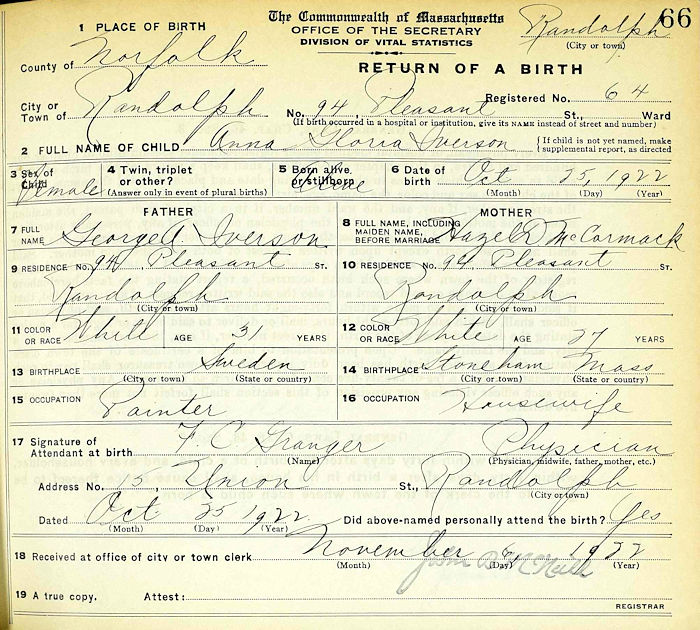 66
The Commonwealth of Massachusetts
OFFICE OF THE SECRETARY
DIVISION OF VITAL STATISTICS
Randolph
(City or town)
1 PLACE OF BIRTH
County of Norfolk
RETURN OF A BIRTH
Registered No. 64
City or Town of Randolph No. 94, Pleasant St., Ward
(If birth occurred in a hospital or institution, give its NAME instead of street and number)
2 FULL NAME OF CHILD Anna Gloria Iverson {If child is not yet named, make supplemental report, as directed
3 Sex of Child Female 4 Twin, triplet or other? (Answer only in event of plural births) 5 Born alive or stillborn Alive 6 Date of birth Oct 25, 1922
(Month) (Day) (Year)
FATHER MOTHER
7 FULL NAME George A Iverson 8 FULL NAME, INCLUDING MAIDEN NAME, BEFORE MARRIAGE Hazel R McCormack
9 RESIDENCE No. 94, Pleasant ST. 10 RESIDENCE No. 94, Pleasant ST.
Randolph Randolph
(City or town) (City or town)
11 COLOR OR RACE White AGE 31 YEARS 12 COLOR OR RACE White AGE 27 YEARS
13 BIRTHPLACE Sweden 14 BIRTHPLACE Stoneham Mass
(City or town) (State or country) (City or town) (State or country)
15 OCCUPATION Painter 16 OCCUPATION Housewife
17 Signature of Attendant at birth F. C. Granger Physician
(Name) (Physician, midwife, father, mother, etc.)
Address No. 15, Union St., Randolph
(City or town)
Dated Oct 25 1922 Did above-named personally attend the birth? Yes
(Month) (Day) (Year)
18 Received at office of city or town clerk November 6, 1922
(Month) (Day) (Year)
19 A true copy. Attest:
REGISTRAR